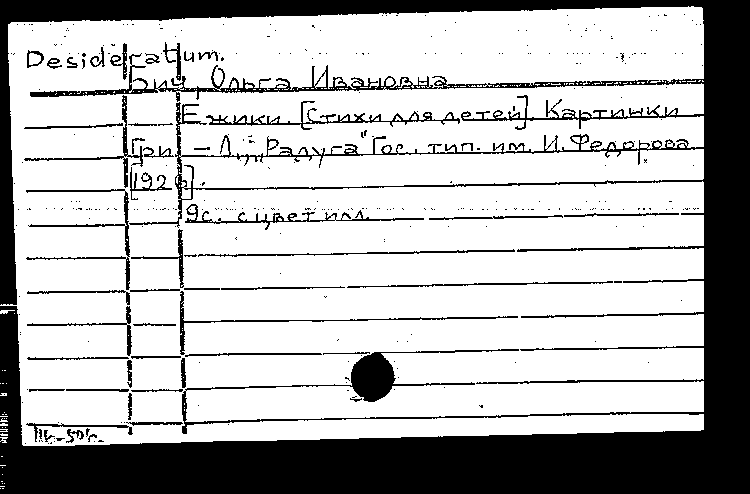 Desideratum.
Бич, Ольга Ивановна
Ежики. [Стихи для детей]. Картинки
Гри. – Л., "Радуга" Гос. тип. им. И. Федорова
[192].
9с. с цвет илл.